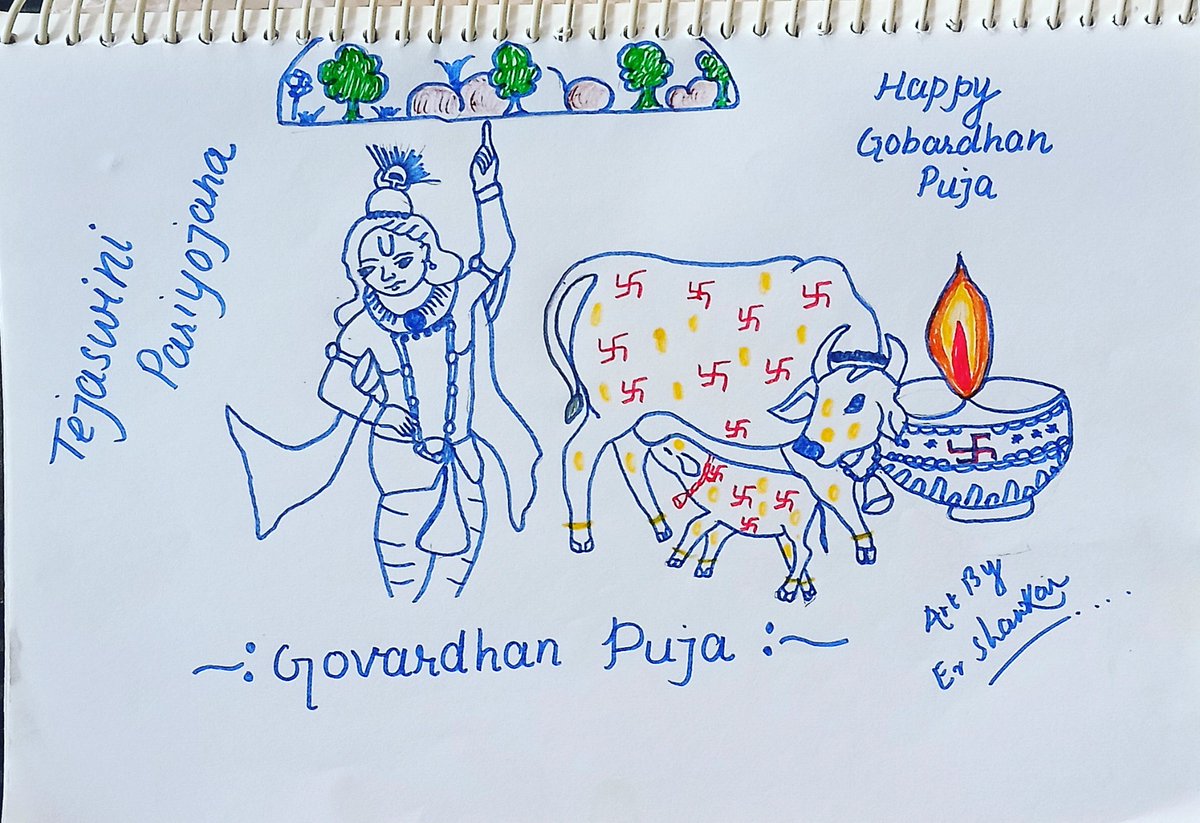 Happy
Gobardhan
Puja
Tejaswini
Pariyojana
~: Govardhan Puja :~
Art By
Er Shankar....